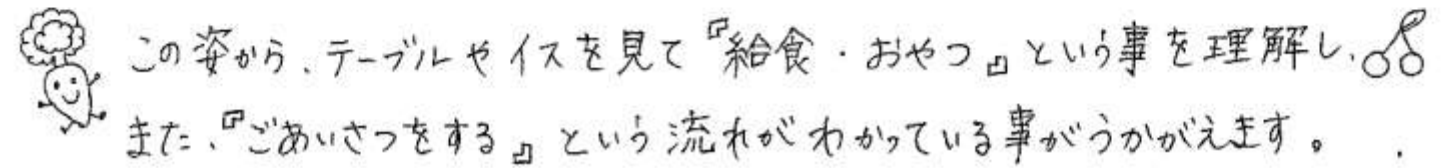 この姿から、テーブルやイスを見て『給食・おやつ』という事を理解し、
また、『ごあいさつをする』という流れがわかっている事がうかがえます。